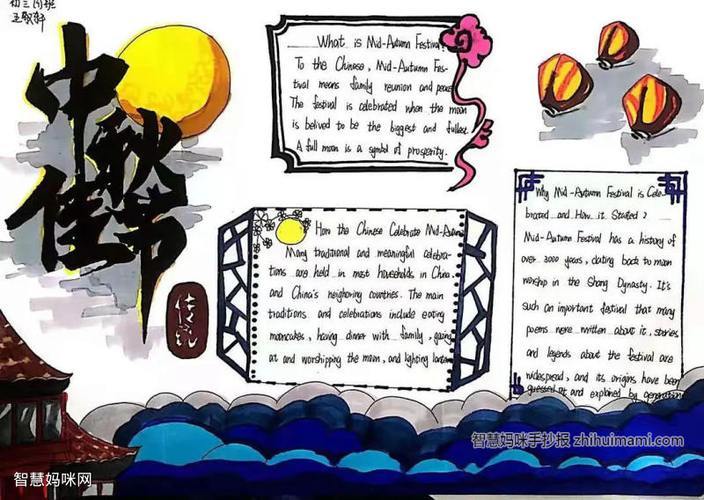 中秋佳节
传说
What is Mid-Autumn Festival?
To the Chinese, Mid-Autumn Fes-
tival means family reunion and peace
The festival is celebrated when the moon
is belived to be the biggest and fullest.
A full moon is a symbol of prosperity.
How the Chinese Celebrate Mid-Autumn
Many traditional and meaningful celebra-
tions are held in most households in China
and China's neighoring countries. The main
traditions and celebrations include eating
mooncakes, having dinner with family, gazing
at and worshipping the moon, and lighting lanterns
Why Mid-Autumn Festival is Cele-
brated and How it Started?
Mid-Autumn Festival has a history of
over 3000 years, dating back to moon
worship in the Shang Dynasty. It's
such an important festival that many
poems were written about it, stories
and legends about the festival are
widespread, and its origins have been
guessed at and explored by generation
智慧妈咪手抄报 zhihuimami.com
智慧妈咪网